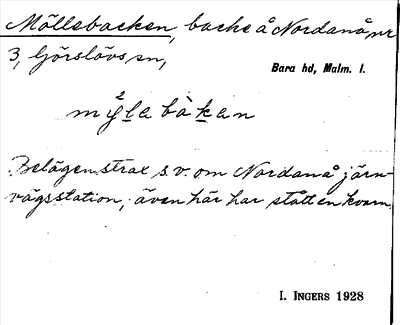 Möllebacken, backe å Nordanå nr
3, Görslövs sn,
Bara hd, Malm. l.
my²la bàkan
Belägen strax s.v. om Nordanå järn-
vägsstation; även här har stått en kvarn.
I. INGERS 1928